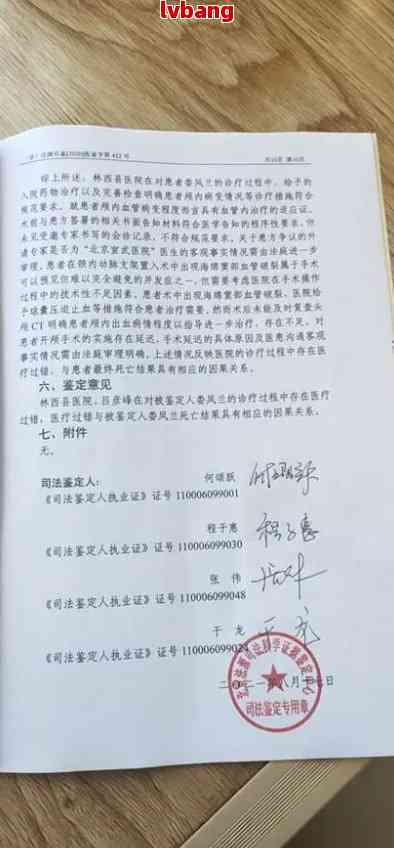 lvbang
综上所述：林西县医院在对患者娄凤兰的诊疗过程中，给予的
入院药物治疗以及完善检查明确患者颅内病变情况等诊疗措施符合
规范要求。就患者颅内血管病变程度而言具有血管内治疗的适应证。
术前与患方签署的相关书面告知材料符合医学告知的程序性要求，但
未见受邀专家书写的会诊记录，不符合规范要求，关于患方争议的外
请专家是否为“北京宣武医院”医生的客观事实情况需由法庭进一步
审理。患者在颈内动脉支架置入术中出现海绵窦部血管破裂属于手术
可以预见但难以完全避免的并发症之一，但需要考虑医院在手术操作
过程中的技术性不足因素，患者术中出现海绵窦部血管破裂，医院给
予球囊压迫止血等措施符合患者治疗需要，然而术后未能及时复查头
颅CT明确患者颅内出血病情程度以指导进一步治疗，存在不足，对
患者开颅手术的实施存在延迟，手术延迟的具体原因及医患沟通客观
事实情况需由法庭审理明确，上述情况反映医院的诊疗过程中存在医
疗过错，与患者最终死亡结果具有相应的因果关系。
六、鉴定意见
林西县医院、吕彦峰在对被鉴定人娄凤兰的诊疗过程中存在医疗
过错，医疗过错与被鉴定人娄凤兰死亡结果具有相应的因果关系。
七、附件
无。
司法鉴定人： 何颂跃
《司法鉴定人执业证》证号 110006099001
程子惠
《司法鉴定人执业证》证号 110006099030
张 伟
《司法鉴定人执业证》证号 110006099048
于 龙
《司法鉴定人执业证》证号 110006099024
二〇二一年八月十七日
司法鉴定专用章